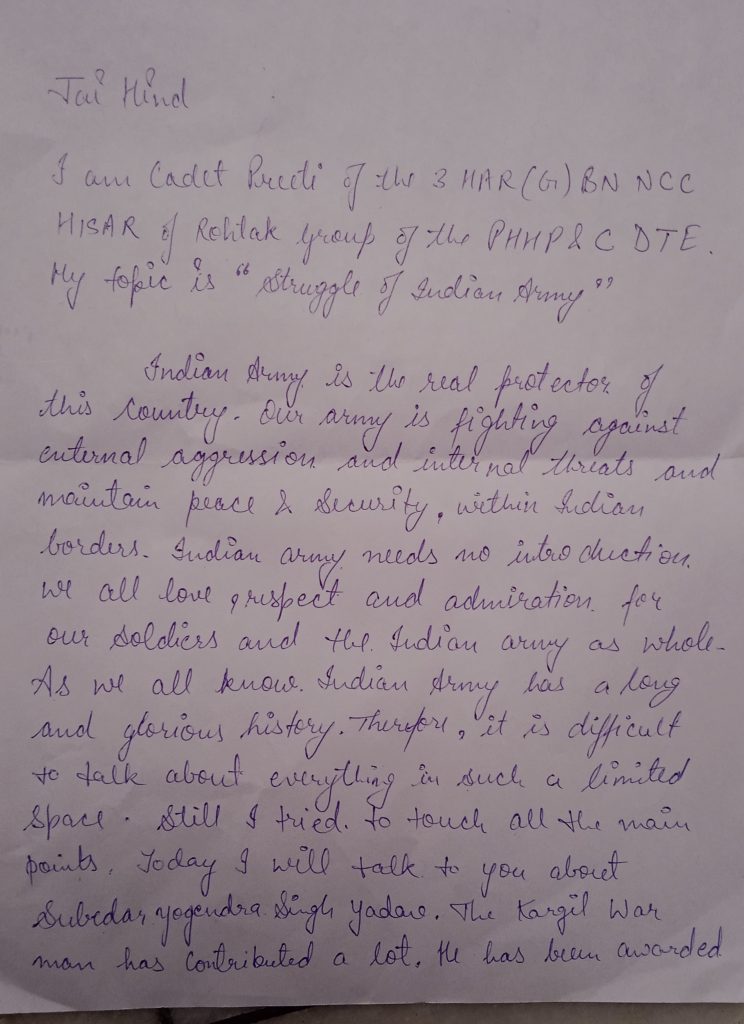 Jai Hind
I am Cadet Preeti of the 3 HAR(G) BN NCC
HISAR of Rohtak group of the PHHP & C DTE.
My topic is "Struggle of Indian Army"
Indian Army is the real protector of
this country. Our army is fighting against
enternal aggression and internal threats and
maintain peace & Security, within Indian
borders. Indian army needs no introduction.
we all love, respect and admiration for
our soldiers and the Indian army as whole.
As we all know. Indian Army has a long
and glorious history. Therefore, it is difficult
to talk about everything in such a limited
space. Still I tried. to touch all the main
points. Today I will talk to you about
Subedar yogendra Singh Yadav. The Kargil War
man has contributed a lot. He has been awarded